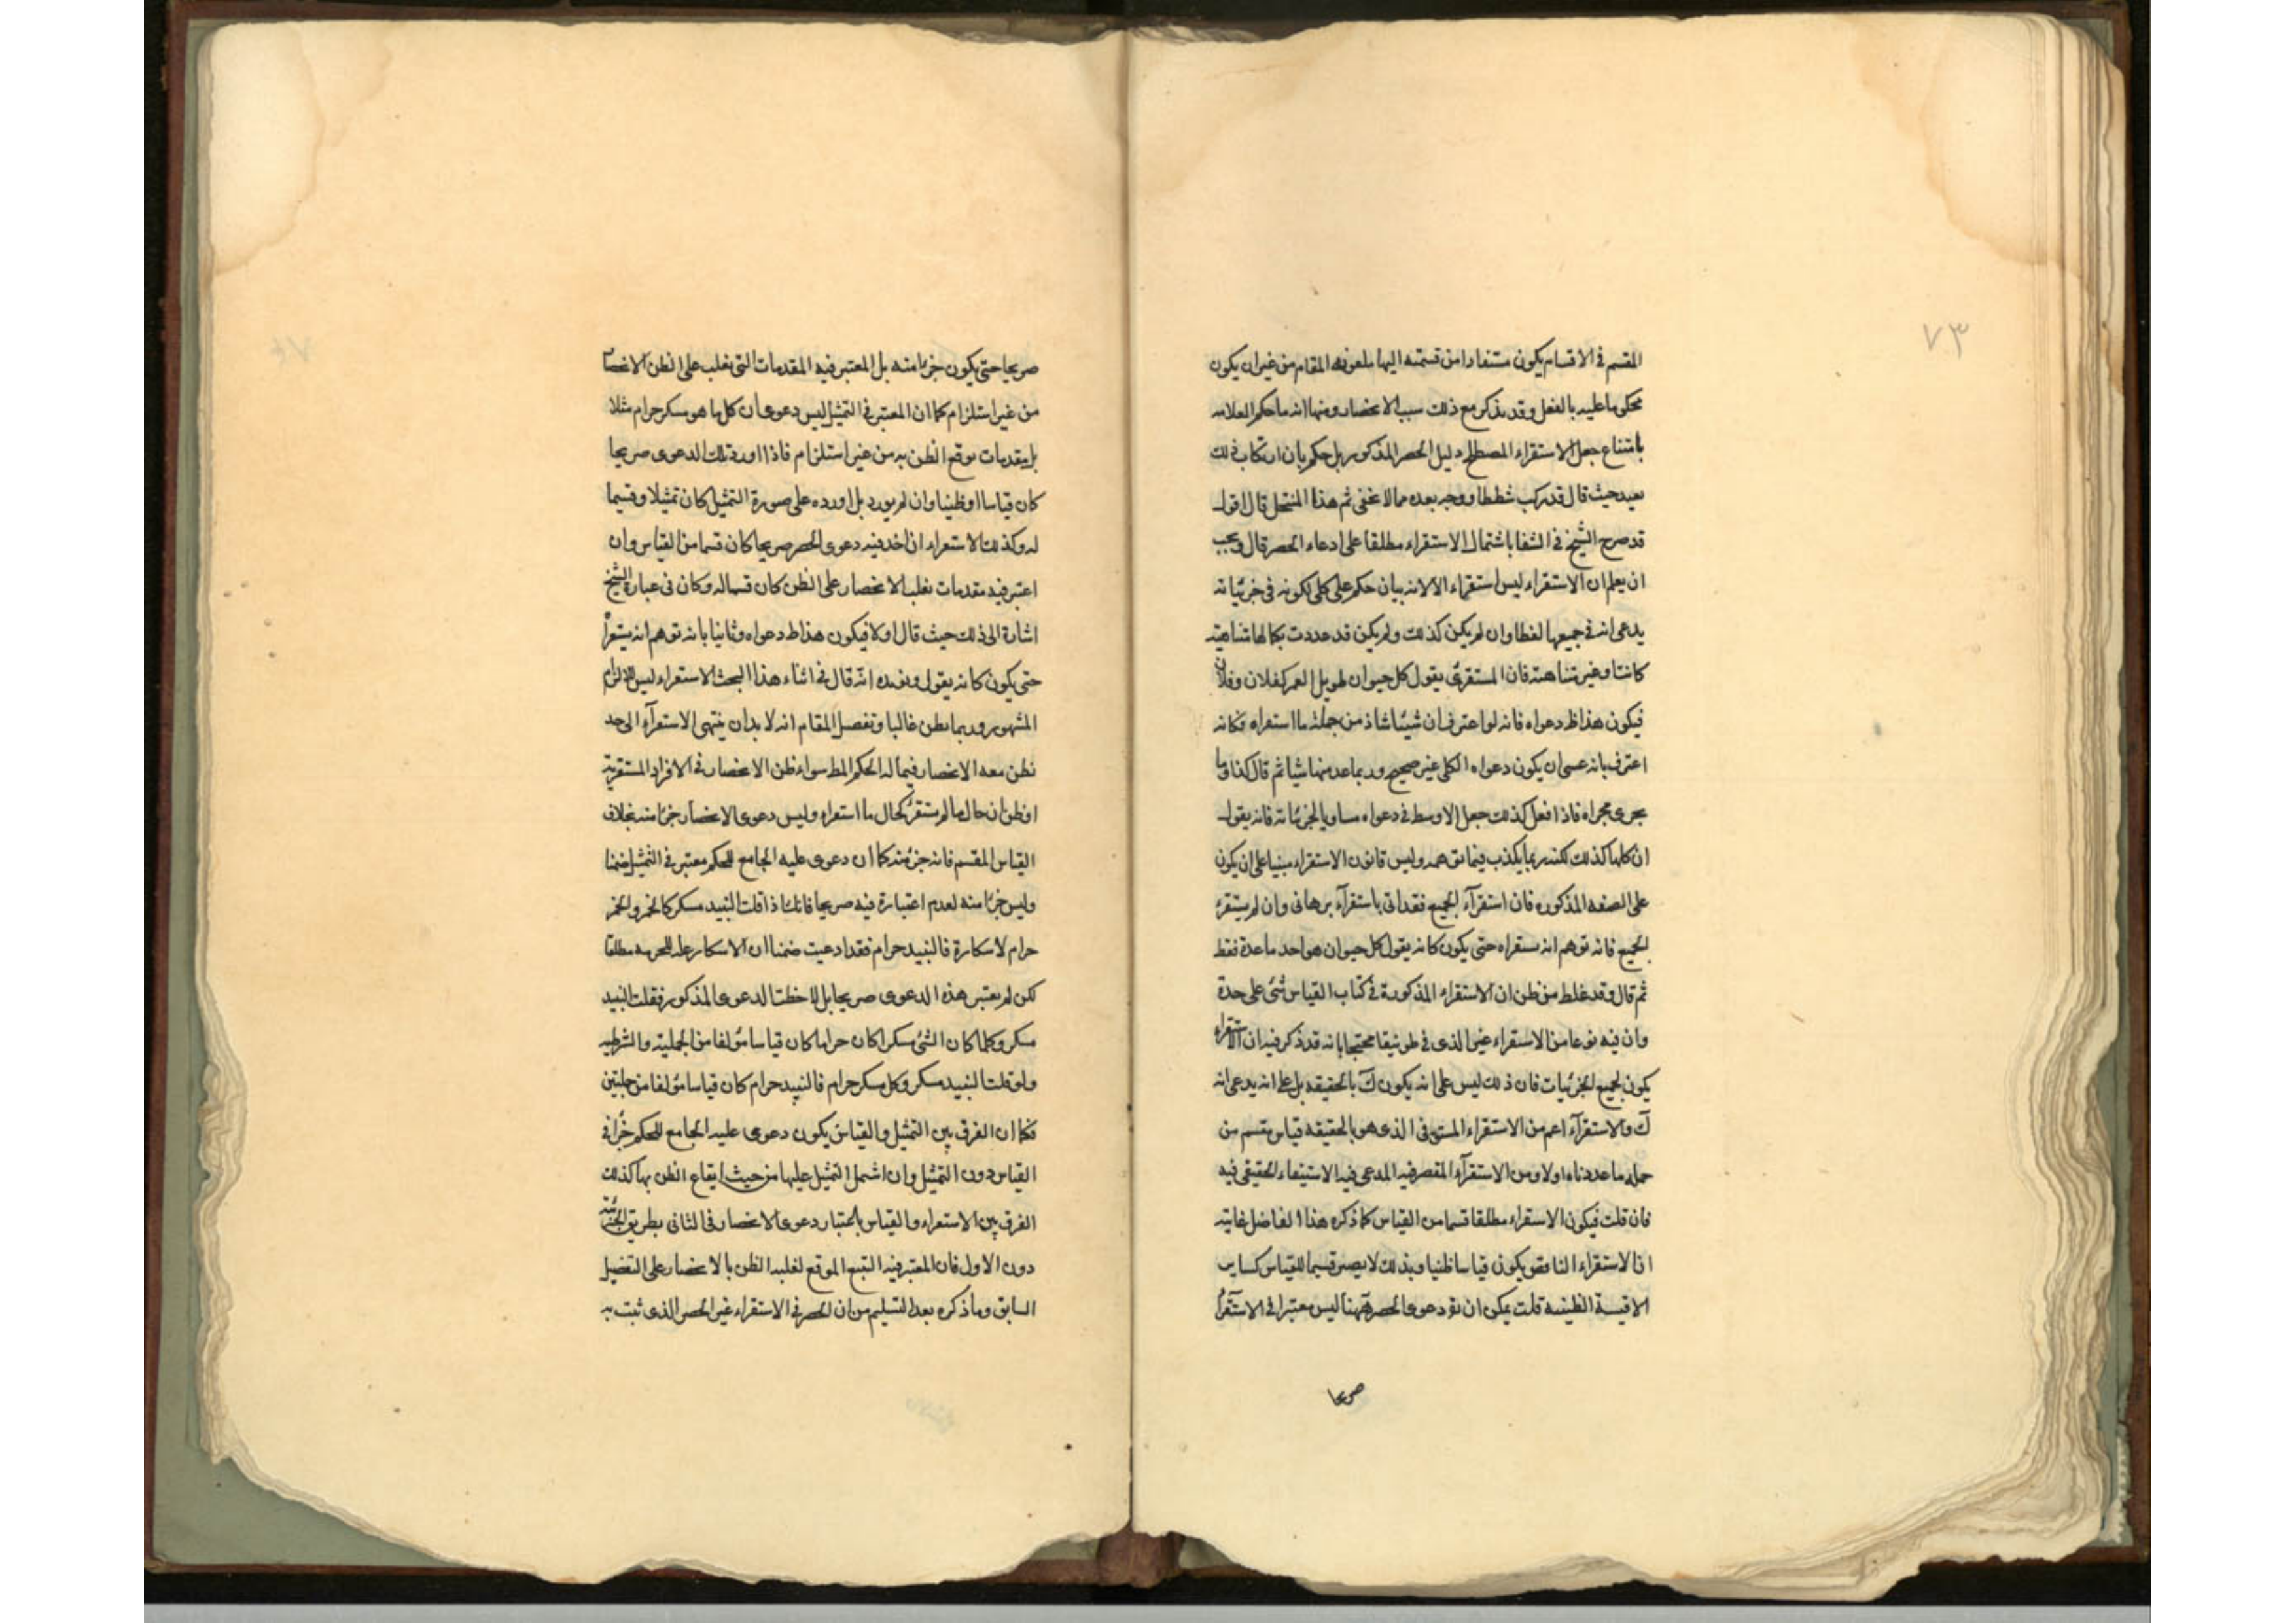 ٧٣
المقسم في الاقسام يكون مستفادا من قسمته اليها بمعونة المقام من غير ان يكون
محكوما عليه بالفعل وقد يذكر مع ذلك سبب الانحصار ومنها انه ما حكم العلامه
بامتناع جعل الاستقراء المصطلح دليل الحصر المذكور بل حكم بان ارتكاب ذلك
بعيد حيث قال قد ركب شططا ووجه بعده مما لا يخفى ثم هذا المنتحل قال اقول
قد صرح الشيخ في الشفا باشتمال الاستقراء مطلقا على ادعاء الحصر قال ويجب
ان يعلم ان الاستقراء ليس استقراء الا لانه بيان حكم على كلي لكونه في جزئياته
يدعى انه في جميعها لفظا وان لم يكن كذلك ولم يكن قد عددت بكمالها متناهية
كانت او غير متناهية فان المستقرئ يقول كل حيوان طويل العمر كفلان وفلان
فيكون هذا ظ دعواه فانه لو اعترف ان شيئا شاذ من جملة ما استقراه فكانه
اعترف بانه عسى ان يكون دعواه الكلي غير صحيح وربما عد منها شيا ثم قال كذا وما
يجرى مجراه فاذا فعل كذلك جعل الاوسط في دعواه مساويا لجزئياته فانه يقول
ان كلها كذلك لكنه ربما يكذب فيما توهمه وليس قانون الاستقراء مبنيا على ان يكون
على الصفه المذكوره فان استقرآء الجميع فقد اتى باستقرآء برهانى وان لم يستقرء
الجميع فانه توهم انه يستقراه حتى يكون كانه يقول كل حيوان هو احد ما عدة فقط
ثم قال وقد غلط من ظن ان الاستقراء المذكورة في كتاب القياس شئ على حدة
وان فيه نوعا من الاستقراء غير الذى في طوبيقا محتجا بانه قد ذكر فيه ان الاستقراء
يكون لجميع الجزئيات فان ذلك ليس على انه يكون ك بالحقيقه بل على انه يدعى انه
ك والاستقرآء اعم من الاستقراء المستوفى الذى هو بالحقيقه قياس مقسم من
جمله ما عددناه اولا ومن الاستقرآء المقصر فيه المدعى فيه الاستيفاء الحقيقى فيه
فان قلت فيكون الاستقراء مطلقا قسما من القياس كما ذكره هذا الفاضل غايته
ان الاستقراء الناقص يكون قياسا ظنيا وبذلك لا يصير قسيما للقياس كساير
الاقيسة الظنيه قلت يمكن ان يق دعوى الحصر ههنا ليس معتبرا في الاستقراء
صريحا
صريحا حتى يكون جزئا منه بل المعتبر فيه المقدمات التى تغلب على الظن الانحصار
من غير استلزام كما ان المعتبر في التمثيل ليس دعوى ان كل ما هو مسكر حرام مثلا
بل مقدمات توقع الظن به من غير استلزام فاذا اورد تلك الدعوى صريحا
كان قياسا وظنيا وان لم يورد بل اورده على صورة التمثيل كان تمثيلا وقسيما
له وكذلك الاستقراء ان اخذ فيه دعوى الحصر صريحا كان قسما من القياس وان
اعتبر فيه مقدمات تغلب الانحصار على الظن كان قسيما له وكان في عبارة الشيخ
اشارة الى ذلك حيث قال اولا فيكون هذا ظ دعواه وثانيا بانه توهم انه يستقرأ
حتى يكون كانه يقول ويؤيده انه قال في اثناء هذا البحث الاستقراء ليس لالزام
المشهور وربما يظن غالبا وتفصيل المقام انه لا بد ان ينتهى الاستقرآء الى حد
يظن معه الانحصار فيما له الحكم المط سواء ظن الانحصار في الافراد المستقرية
او ظن ان حال ما لم يستقر كحال ما استقراه وليس دعوى الانحصار جزئا منه بخلاف
القياس المقسم فانه جزء منه كما ان دعوى عليه الجامع للحكم معتبر في التمثيل ضمنا
وليس جزئا منه لعدم اعتباره فيه صريحا فانك اذا قلت النبيد مسكر كالخمر والخمر
حرام لاسكاره فالنبيد حرام فقد ادعيت ضمنا ان الاسكار عله للحرمه مطلقا
لكن لم يعتبر هذه الدعوى صريحا بل لو لاحظت الدعوى المذكور فقلت النبيد
مسكر وكلما كان الشئ مسكرا كان حراما كان قياسا مؤلفا من الحملية والشرطيه
ولو قلت النبيد مسكر وكل مسكر حرام فالنبيد حرام كان قياسا مؤلفا من حمليتين
فكما ان الفرق بين التمثيل والقياس يكون دعوى عليه الجامع للحكم جزأ في
القياس دون التمثيل وان اشتمل التمثيل عليها من حيث ايقاع الظن بها كذلك
الفرق بين الاستقراء والقياس باعتبار دعوى الانحصار في الثانى بطريق الجزئية
دون الاول فان المعتبر فيه التتبع الموقع لغلبه الظن بالانحصار على التفصيل
السابق وما ذكره بعد التسليم من ان الحصر في الاستقراء غير الحصر الذى ثبت به